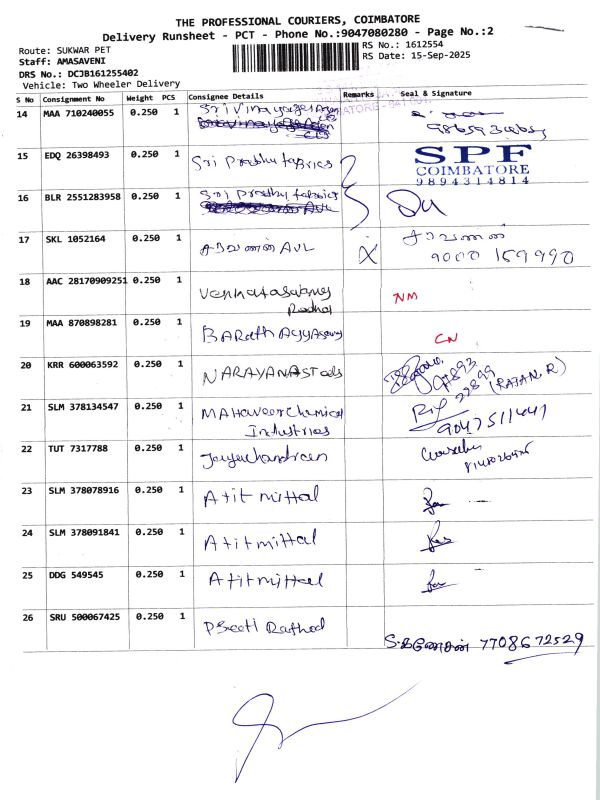 THE PROFESSIONAL COURIERS, COIMBATORE
Delivery Runsheet - PCT - Phone No.:9047080280 - Page No.:2
Route: SUKWAR PET
RS No.: 1612554
Staff: AMASAVENI
RS Date: 15-Sep-2025
DRS No.: DCJB161255402
Vehicle: Two Wheeler Delivery
S No Consignment No Weight PCS Consignee Details Remarks Seal & Signature
14 MAA 710240055 0.250 1
15 EDQ 26398493 0.250 1 Sri Prabhu fabrics SPF
COIMBATORE
9894314814
16 BLR 2551283958 0.250 1 Sri Prabhu fabrics
17 SKL 1052164 0.250 1 சரவணன் AVL X சரவணன்
9000 159990
18 AAC 28170909251 0.250 1 NM
19 MAA 870898281 0.250 1 CN
20 KRR 600063592 0.250 1 NARAYANA (RAJAN.R)
21 SLM 378134547 0.250 1 MAHAVEER Chemical
Industries
22 TUT 7317788 0.250 1
23 SLM 378078916 0.250 1 Atit mittal
24 SLM 378091841 0.250 1 Atit mittal
25 DDG 549545 0.250 1 Atit mittal
26 SRU 500067425 0.250 1 Rathod
S.கணேசன் 7708672529